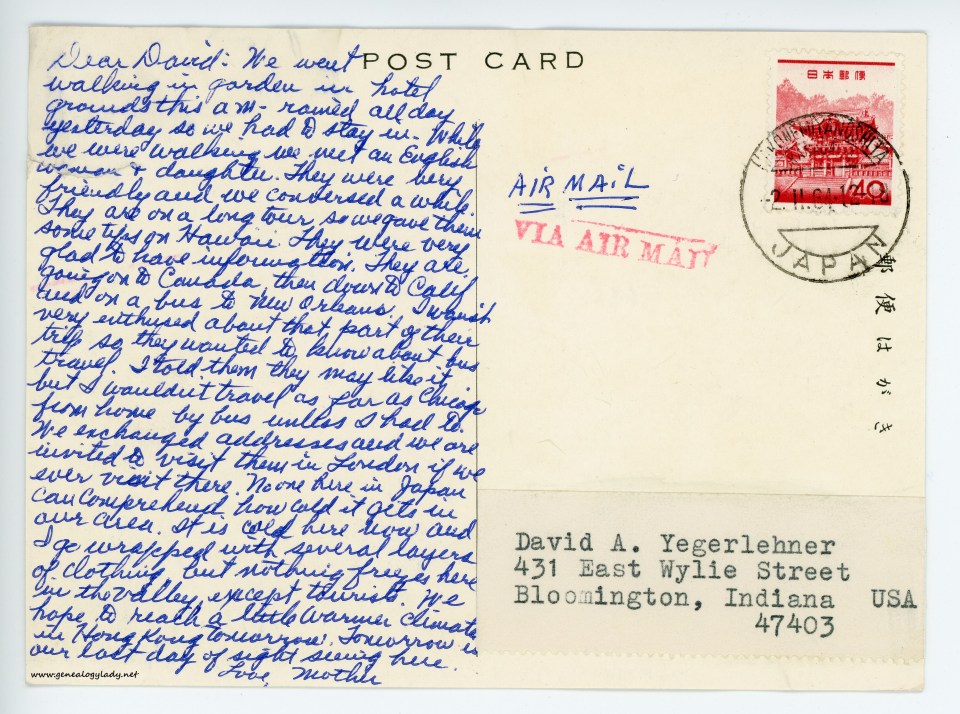 POST CARD
Dear David: We went
walking in garden in hotel
grounds this a m - rained all day
yesterday so we had to stay in. While
we were walking we met an English
woman & daughter. They were very
friendly and we conversed a while.
They are on a long tour, so we gave them
some tips on Hawaii. They were very
glad to have information. They are
going on to Canada, then down to Calif
and on a bus to New Orleans. I wasn't
very enthused about that part of their
trip so they wanted to know about bus
travel. I told them they may like it
but I wouldn't travel as far as Chicago
from home by bus unless I had to.
We exchanged addresses and we are
invited to visit them in London if we
ever visit there. No one here in Japan
can comprehend how cold it gets in
our area. It is cold here now and
I go wrapped with several layers
of clothing, but nothing freezes here
in the valley, except tourist. We
hope to reach a little warmer climate
in Hong Kong tomorrow. Tomorrow is
our last day of sight seeing here.
Love, Mother
www.genealogylady.net
日本郵便
40
JAPAN
AIR MAIL
VIA AIR MAIL
郵便はがき
David A. Yegerlehner
431 East Wylie Street
Bloomington, Indiana USA
47403